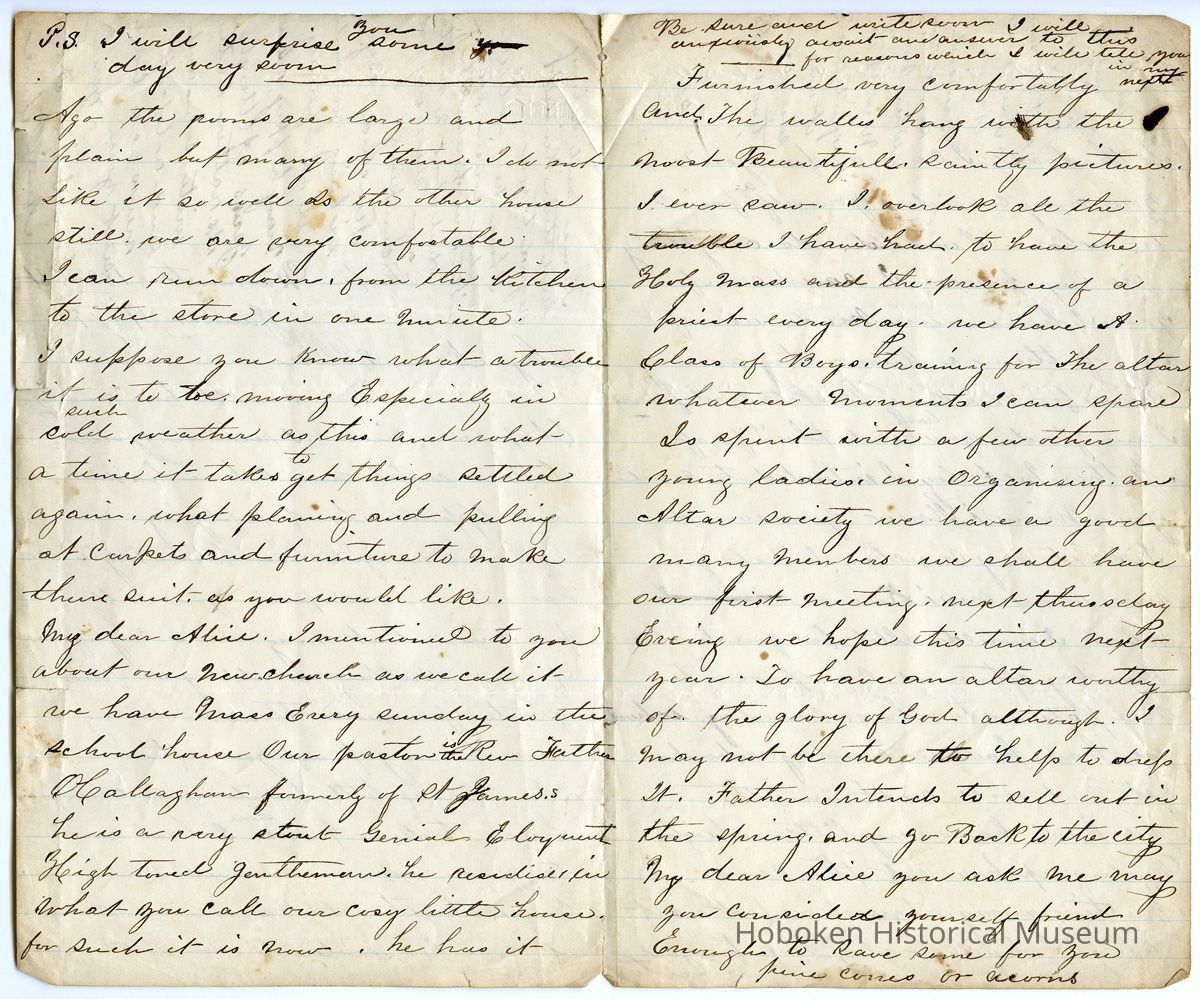 P.S. I will surprise you some
day very soon
Ago the rooms are large and
plain but many of them. I do not
like it so well as the other house
still. we are very comfortable
I can run down, from the Kitchen
to the store in one minute.
I suppose you know what a trouble
it is to be. moving Especially in
such
cold weather as this and what
a time it takes to get things settled
again. what planing and pulling
at carpets and furniture to make
them suit. as you would like.
My dear Alice. I mentioned to you
about our New church as we call it
we have Mass Every sunday in the
school house Our pastor is the Rev Father
O'Callaghan formerly of St James.s
he is a very stout Genial Eloquent
High toned gentleman. he residise in
what you call our cosy little house.
for such it is now. he has it
Be sure and write soon I will
anxiously await an answer to this
for reasons which I will tell you
in my next
Furnished very comfortably
and. The walls hang with the
most Beautifull. saintly pictures.
I ever saw. I. overlook all the
trouble I have had. to have the
Holy Mass and the presence of a
priest every day. we have A
Class of Boys. training for The altar
whatever Moments I can spare
Is spent with a few other
young ladies. in Organising. an
Altar society we have a good
many members we shall have
our first meeting. next thursday
Eveing we hope this time next
year. To have an altar worthy
of. the glory of God although. I
may not be there to help to dress
It. Father Intends to sell out in
the spring. and go Back to the city
My dear Alice you ask me may
you consided yourself friend
Enough to save some for you
pine cones or acorns
Hoboken Historical Museum